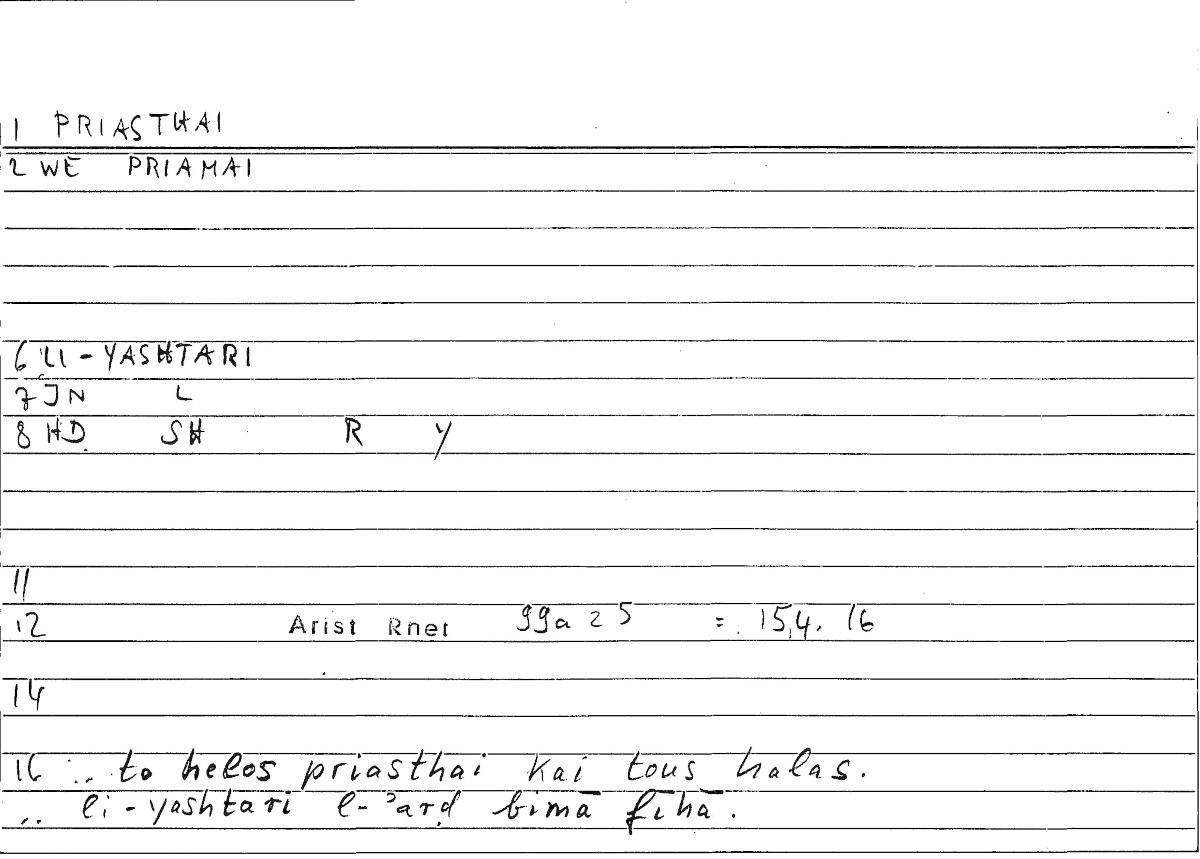 1 PRIASTHAI
2 WE PRIAMAI
6 LI - YASHTARI
7 JN L
8 HD SH R Y
11
12 Arist Rhet 99a 25 = 15,4. 16
14
16 .. to helos priasthai kai tous halas.
.. li - yashtari l-ʾarḍ bimā fīhā.